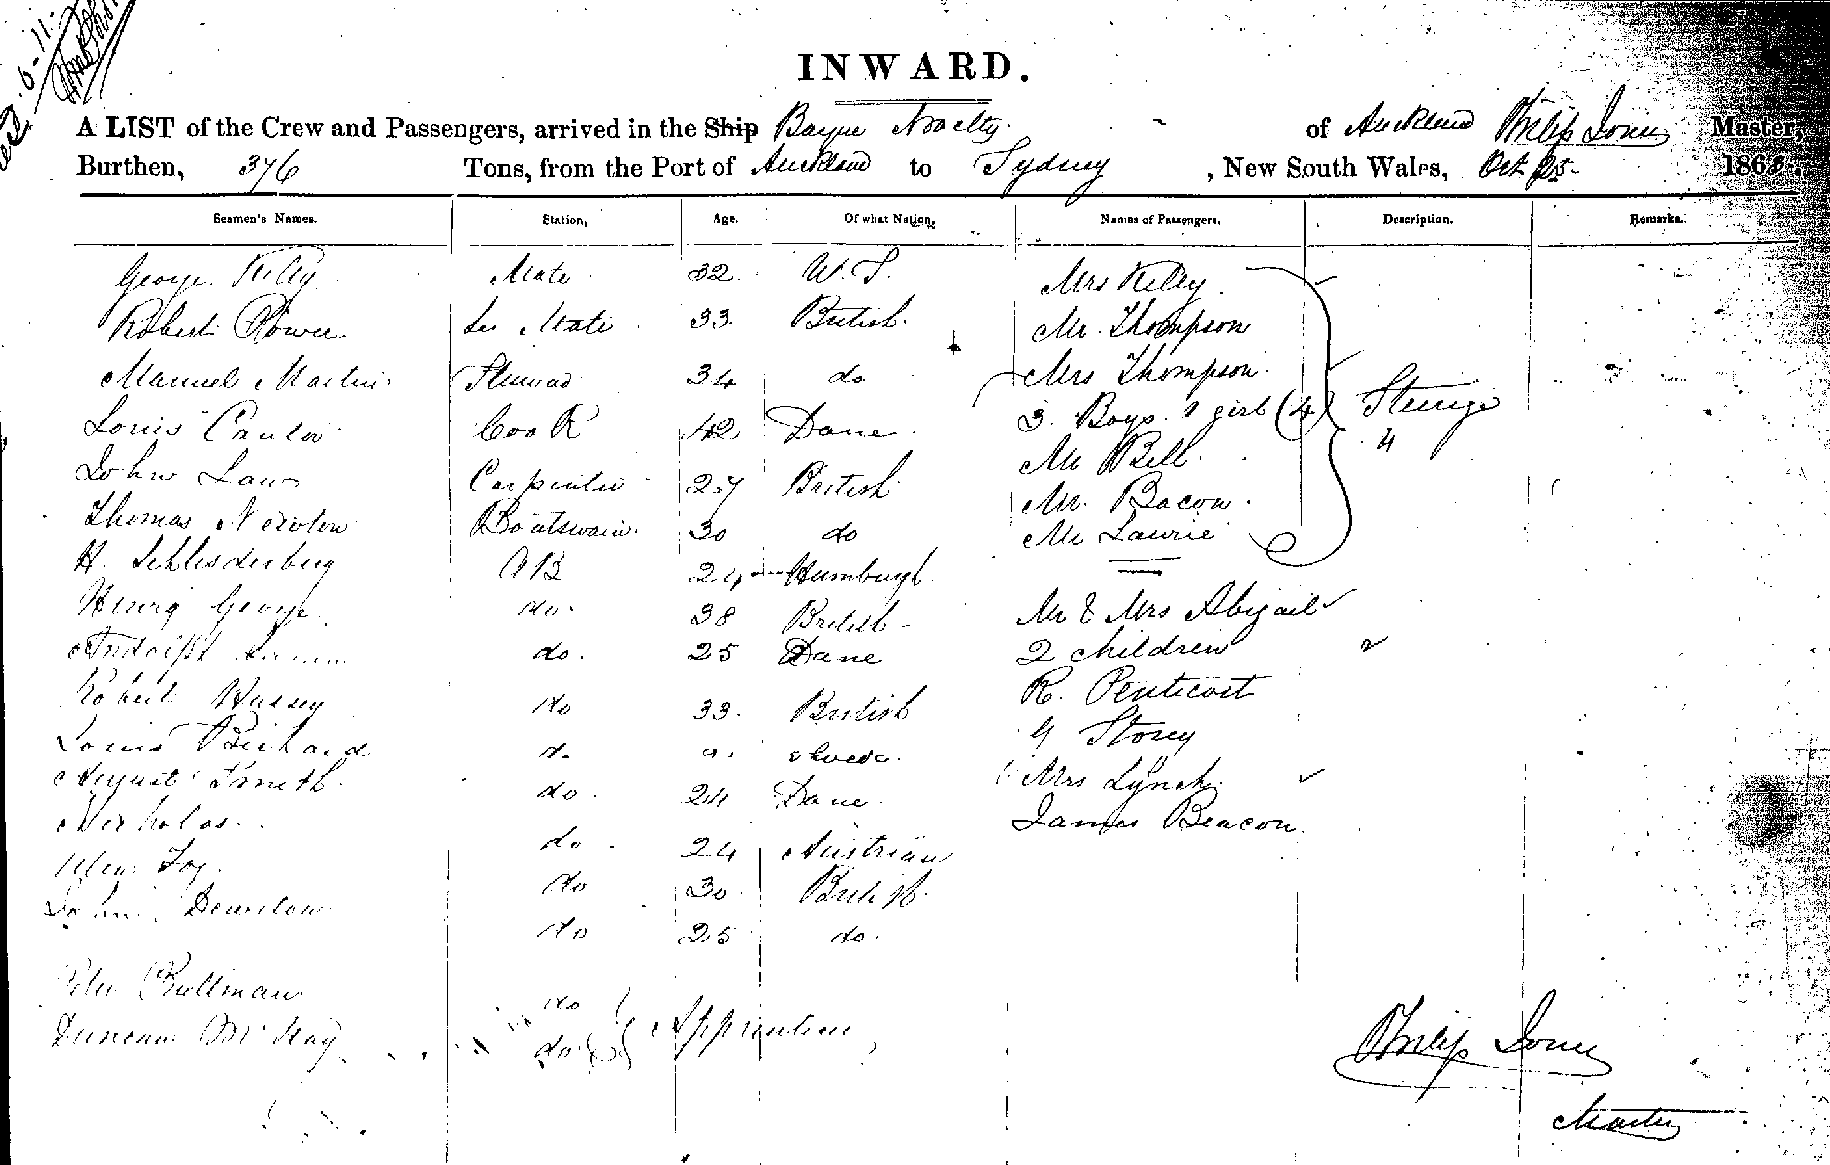 INWARD.
A LIST of the Crew and Passengers, arrived in the Ship Barque Novelty of Auckland Philip Jones Master,
Burthen, 376 Tons, from the Port of Auckland to Sydney, New South Wales, Oct 25 186
Seamen's Names. Station, Age. Of what Nation, Names of Passengers. Description. Remarks.
George Kiley Mate 32 U.S. Mrs Kiley
Robert Mate 33 British. Mr. Thompson
Manuel Martin 34 do Mrs Thompson
Louis Cook 42 Dane 3. Boys. 1 girl (4) Steerage
4
John Carpenter 27 British Mr Bell
Thomas Newton Boatswain 30 do Mr. Bacon
Mr Laurie
H. AB 24 Hamburgh
Henry George do. 38 British Mr & Mrs Abigail
do. 25 Dane 2 children
Robert Hussey do 33. British R. Penticost
Louis do Swede. G Storey
August Smith do. 24 Dane Mrs Lynch
Nicholas do 24 Austrian James Beacon.
Foy do 30 British
John do 25 do.
Peter Bullman do
Duncan McKay do Apprentices
Philip Jones
Master